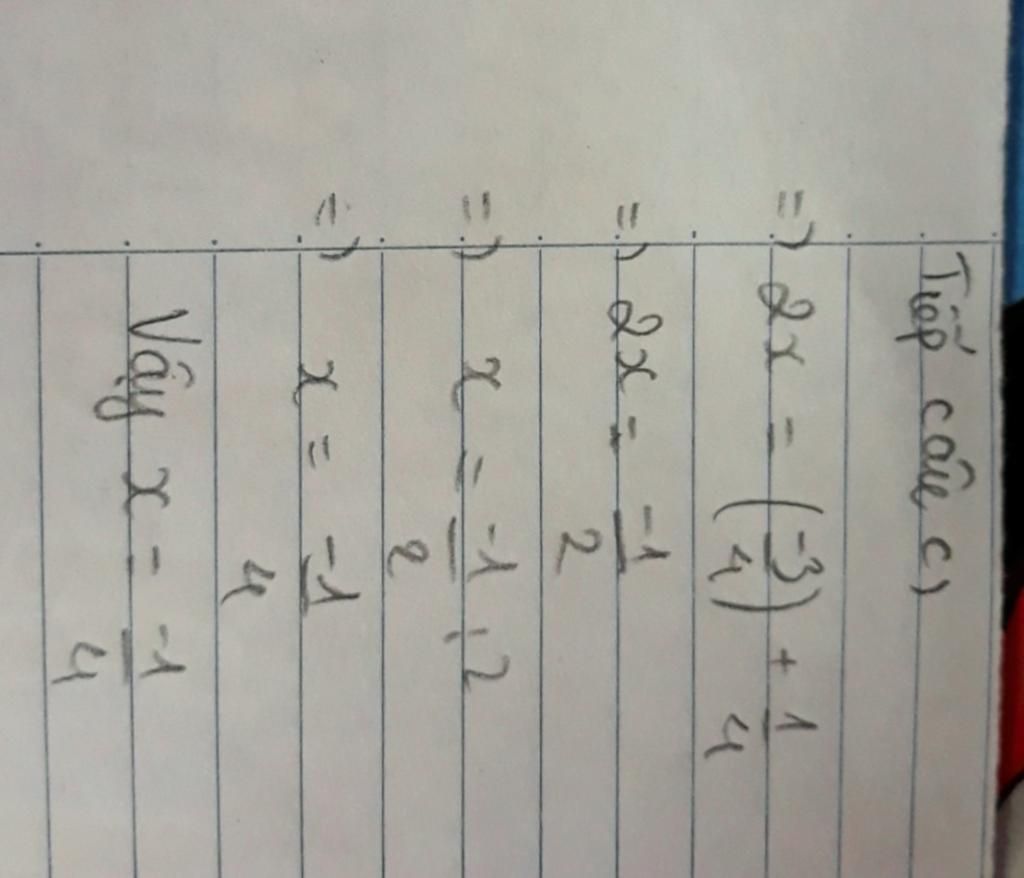 Tiếp câu c)
=) 2x = (-3/4) + 1/4
=) 2x = -1/2
=) x = -1/2 : 2
=) x = -1/4
Vậy x = -1/4